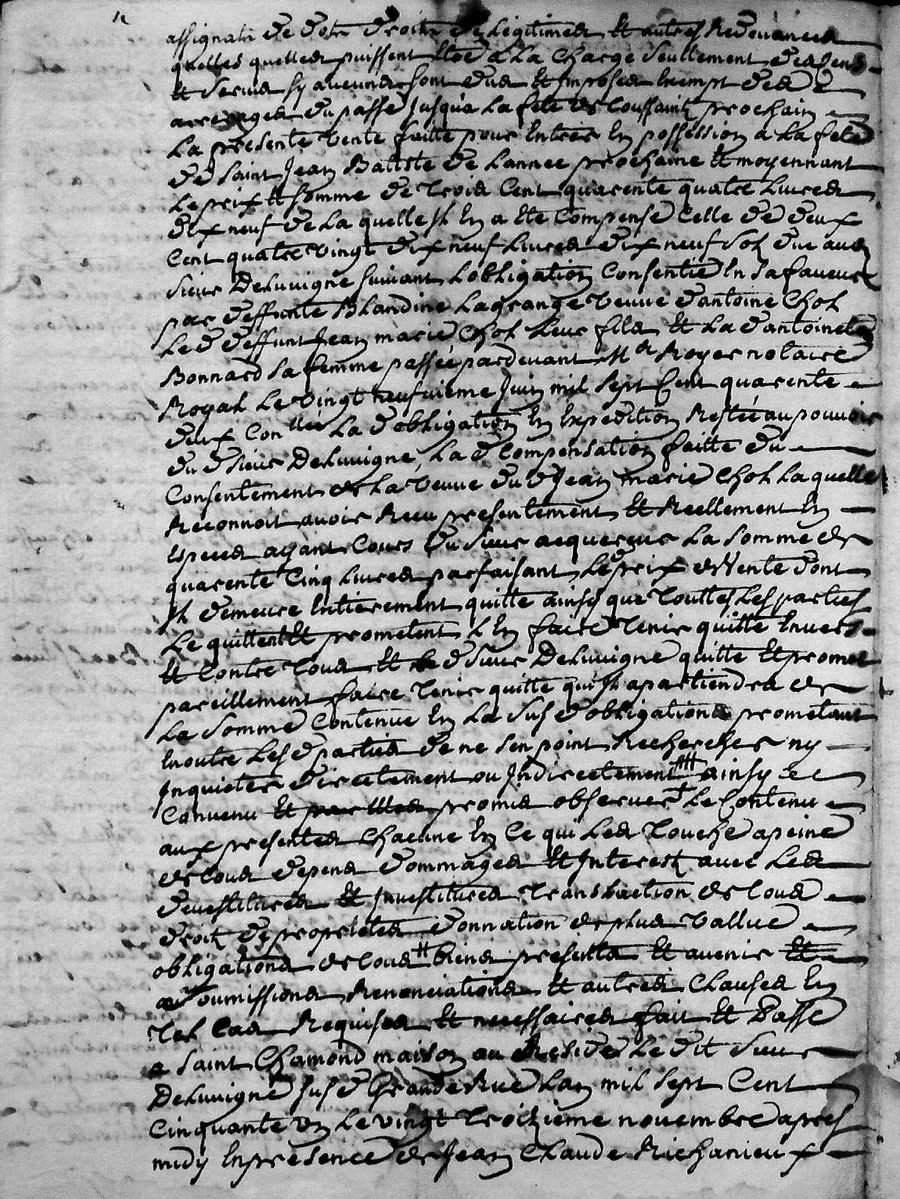 assignati de dote droits de Legitimes et autres Redevances
quelles quelles puissent Etre a La Charge Seullement des Cens
et Servis sy aucuns sont dus et Imposes Exempt des
arrerages du passé Jusqua La fete de toussaint prochain
La presente vente faitte pour Entrer En possession a La fete
de Saint Jean Batiste de Lannee prochaine et moyennant
Le prix et somme de trois Cent quarente quatre Livres
dix neuf de La quelle Il En a ete Compensé Celle de deux
Cent quatre vingt dix neuf Livres dix neuf sol due aud
sieur Deluvigne suivant Lobligation Consentie En sa faveur
par deffunte Blandine Lagrange veuve dantoine Chol
Le d deffunt Jean marie Chol Leur fils et La d antoinette
Bonnard sa femme passée pardevant Me Royer notaire
Royal Le vingt neufvieme Juin mil sept Cent quarente
deux Conllée La d obligation En Expedition Restée au pouvoir
du d sieur Deluvigne, La d Compensation faitte du
Consentement de La veuve du d Jean marie Chol Laquelle
Reconnoit avoir Receu presentement et Reellement En
Especes ayant Cours du sieur acquereur La somme de
quarente Cinq Livres parfaisant Le prix de vente dont
Il demeure Entierement quitte ainsy que touttes Les parties
Le quittent et prometent L En faire tenir quitte Envers
et Contre tous et Le d sieur Deluvigne quitte et promet
pareillement faire tenir quitte qui Il apartiendra de
La somme Contenue En La sus d obligation prometant
En outre Les d parties de ne sen point Rechercher ny
Inquieter directement ou Indirectement ainsy
Convenu et par Elles promis observer Le Contenu
aux presentes chacune En Ce qui Les touche a peine
de tous depens dommages et Interest avec Les
devestitures et Investitures translaction de tous
droit de proprietes donnation de plus vallue
obligations de tous biens presents et avenir et
soumissions Renonciations et autres Clauses En
tel Cas Requises et necessaires fait et Passé
a saint Chamond maison ou Reside Le dit sieur
Deluvigne sus d Grande Rue Lan mil sept Cent
Cinquante un Le vingt troizieme novembre apres
midy En presence de Jean Claude Richarieux